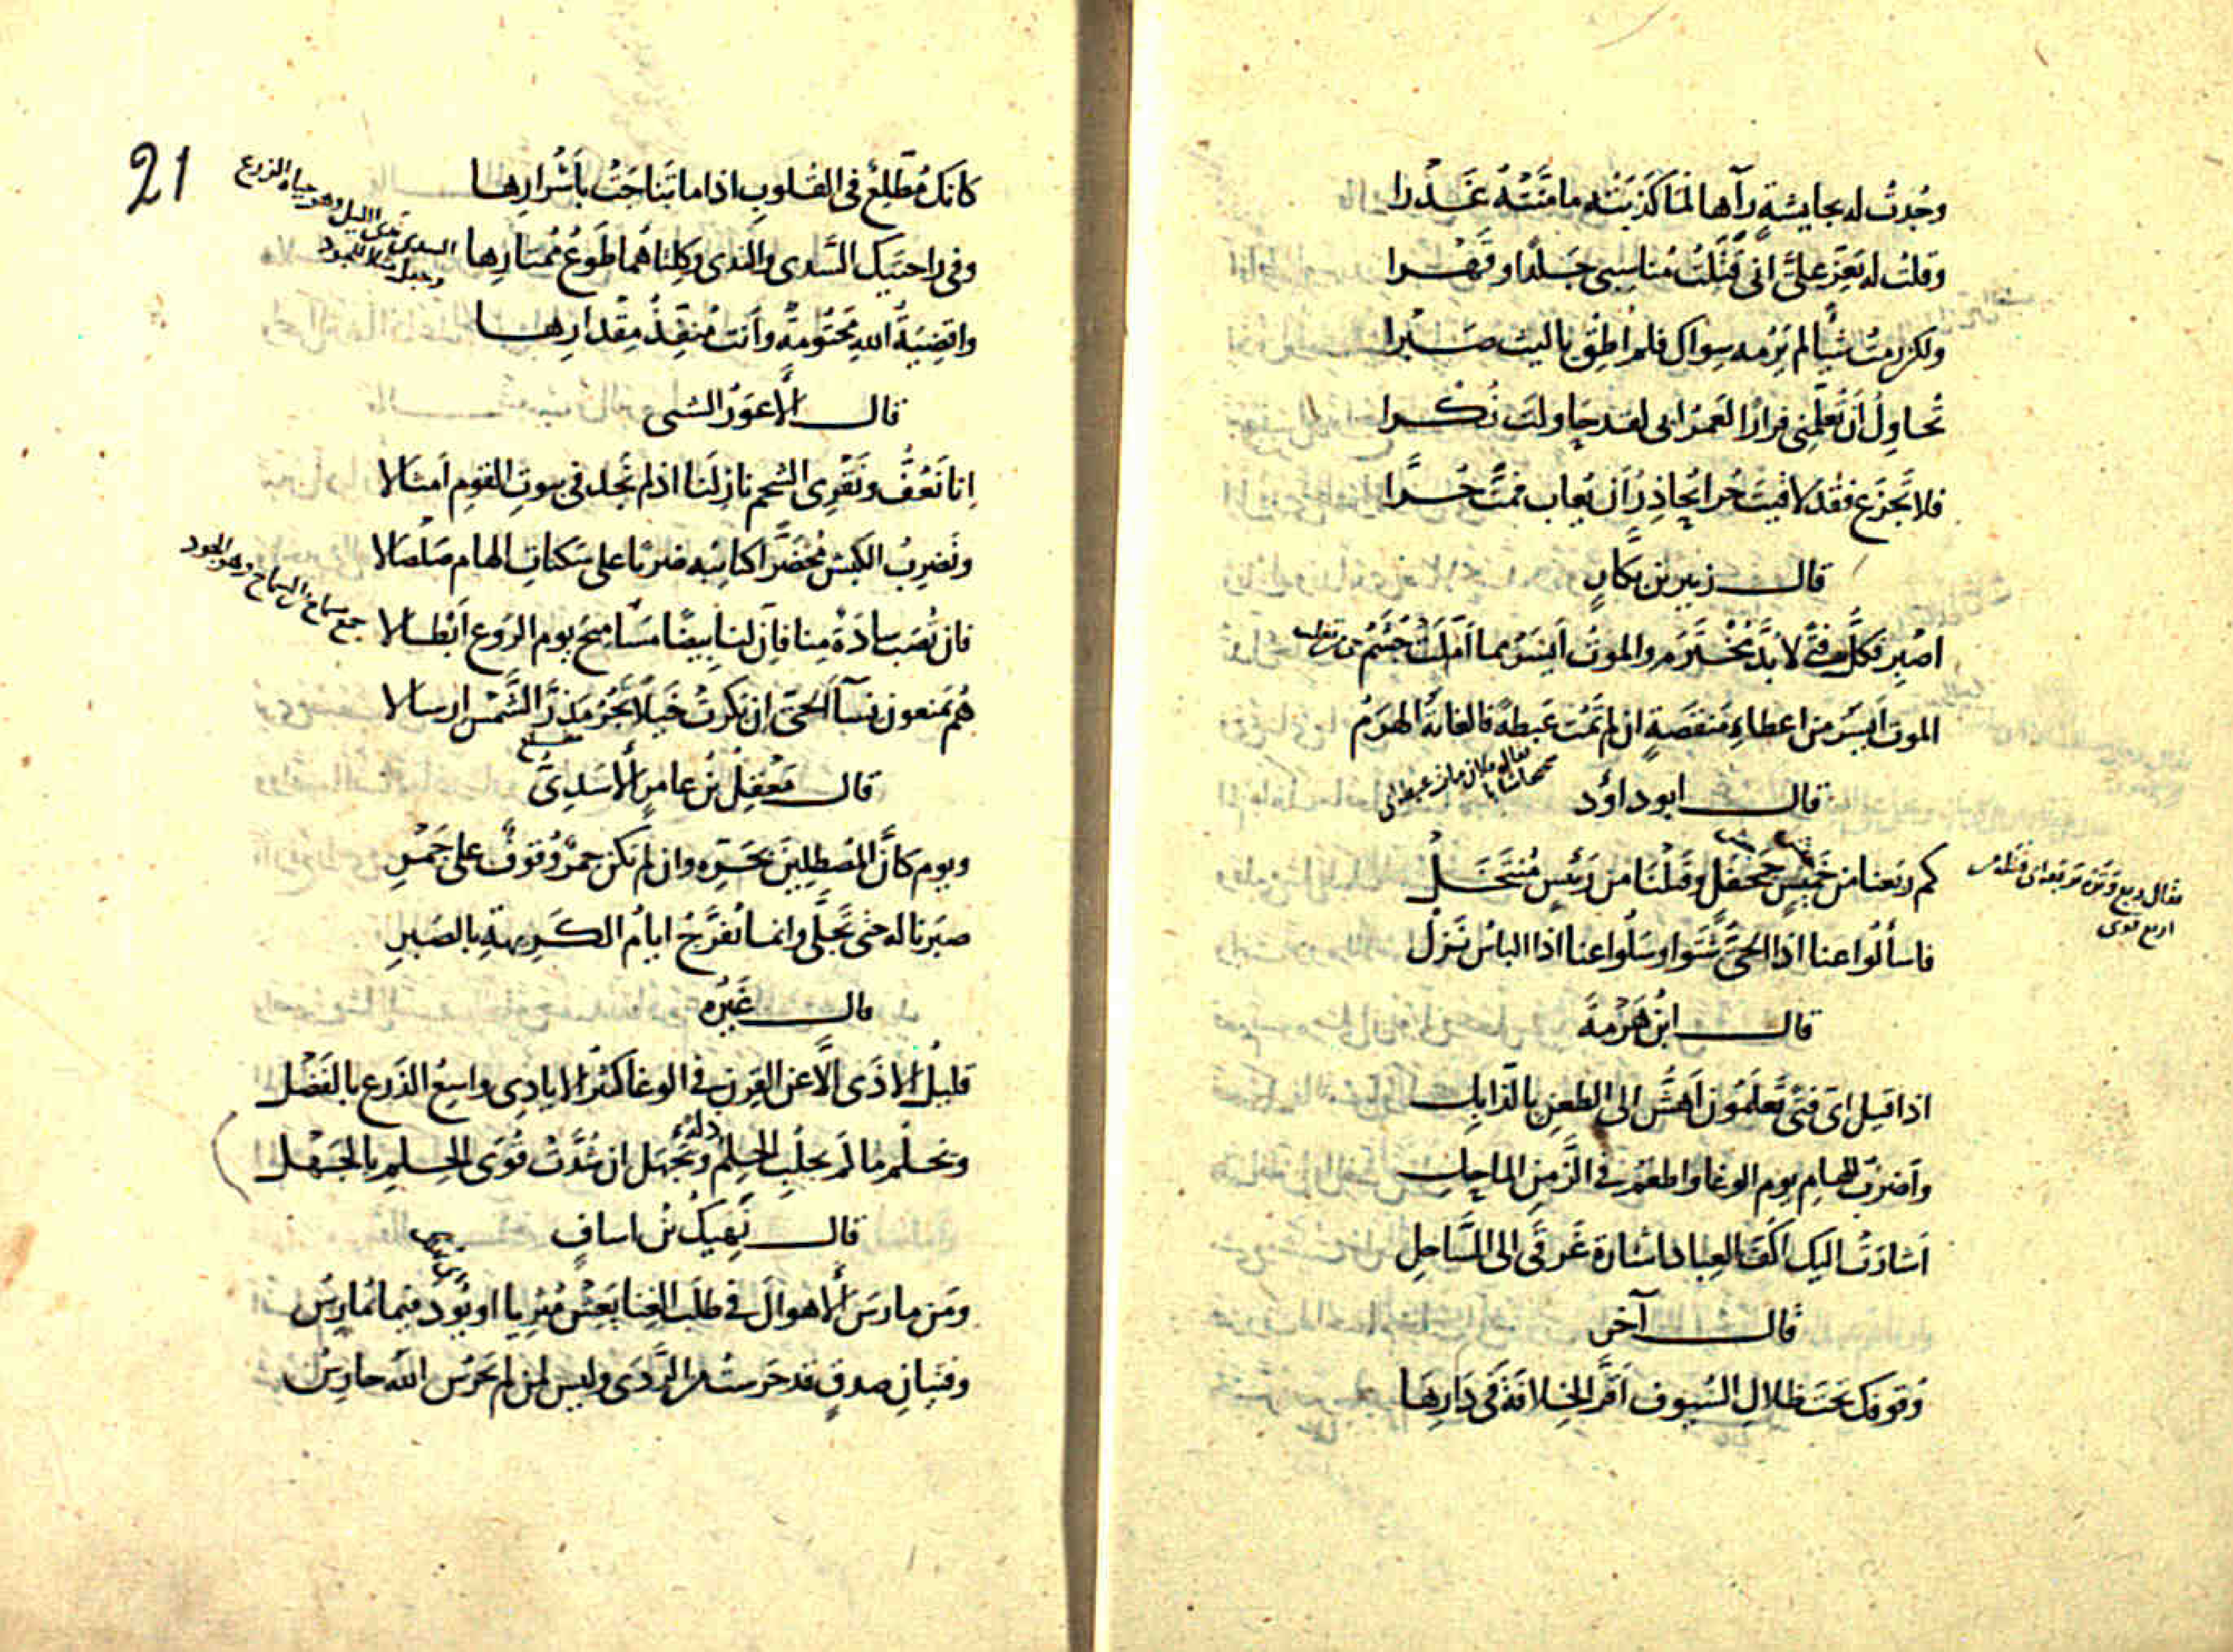 وجُدتُ له بجايشةٍ رآها لمَا كَذَبَتْه ما مَنَّتْهُ غَدْرا
وقلتُ له يَعِزّ علىَّ انى قَتَلتُ مُناسبى جَلَدًا وقَهْرا
ولكن رمتُ شيًا لم يَرُمه سِواك فلم اُطِق ياليث صَبْرا
تُحاوِلُ اَن تُعلّمنى فِرارًا لعَمرُ ابى لقد حاولتَ نُكْرا
فلا تَجزَع فقد لاقيتَ حُرا يُحاذِرُ اَن يُعاب فمُتَّ حُرَّا
قال زبير بن بكارٍ
اصْبِر فكلّ فتًى لابُدَّ مُخْتَرَم والموتُ اَيسَرُ مما اَمَّلَت جُشَمُ
الموت اَيسَر من اعطاءِ مَنقَصَةٍ ان لم تَمُت عَبطةً فالغايةُ الهَرَمُ
قال ابو داؤد
كم رَبَعنا من خَميسٍ جَحْفَلٍ وقَتَلْنَا من رَئيسٍ مُنتَحَلْ
فاسألُوا عنا اذا الحىُّ شَتَوا وسَلُوا عنا اذا الباسُ نَزَلْ
قال ابنُ هَرْمَةَ
اذا قيل اىّ فتًى تَعلَمُون اَهشّ الى الطعنِ بالذابِل
واَضرَبُ للهامِ يوم الوغا واَطعَمُ فى الزَّمنِ الماحِلِ
اَشارَتْ اليك اكُفُّ العِباد اشارة غَرقَى الى السَّاحِلِ
قال آخر
وُقوفك تحتَ ظلالِ السُيوف اَقَرَّ الخِلافَةَ فى دَارِهَا
21
كانك مُطّلِعٌ فى القلوبِ اذا ما تَناجَتْ باَسْرارِها
وفى راحتَيك السَّدى والندى وكلتاهُما طَوعُ مُمتارِها
السدى ندى الليل وهو حياة الزرع
وجعل مثلا للجود
واقضِيَةُ اللهِ مَحتُومةٌ وأنتَ مُنفِّذُ مِقْدارِها
قال الاَعوَرُ الشنى
اِنا نَعُفُّ ونَقْرِى الشحم نازِلَنا اذ لم تَجد فى بيوتِ القومِ اَمثالا
ونَضرِبُ الكَبشَ مُحْضَرًّا كتائبه ضربًا على سَكناتِ الهام صَلْصَالا
فان تُصَب سادَةٌ مِنا فاِنّ لنا بيضًا مَسَاميحَ يوم الرَوع اَبْطالا
هُم يَمنعون نسآ الحىّ ان نكرتْ خَيلًا تَجُرّ مَذَرَّ الشَّمس ارسالا
قال مَعْقِلُ بنُ عامرٍ الأَسَدِىّ
ويوم كاَنَّ المُصْطَلِينَ بحَرِّه وان لم تكن جمرٌ وُقوفٌ على جَمْرِ
صَبَرنا له حتى تَجَلَّى وانما تُفَرَّجُ ايامُ الكَرِيهَةِ بالصَبرِ
قال غَيرُه
قليلُ الاَذَى اِلَّا عن القِرنِ فى الوغا كثيرُ الايادِى واسِعُ الذَرعِ بالفَضْلِ
ويَحلُم ما لم يجلبِ الحِلمُ ذلةً ويَجْهَل ان شُدَّتْ قُوَى الحِلمِ بالجَهْلِ
قال نَهِيكُ بنُ اسافٍ
ومَن مارَسَ الأهوالَ فى طَلَبِ الغِنا يَعِشْ مُثرِيا او يُودِ فيما يُمَارِسُ
وفتيانِ صدقٍ قد حَرستُ من الرَّدَى وليس لمن لم يَحرُسِ اللّه حارِسُ